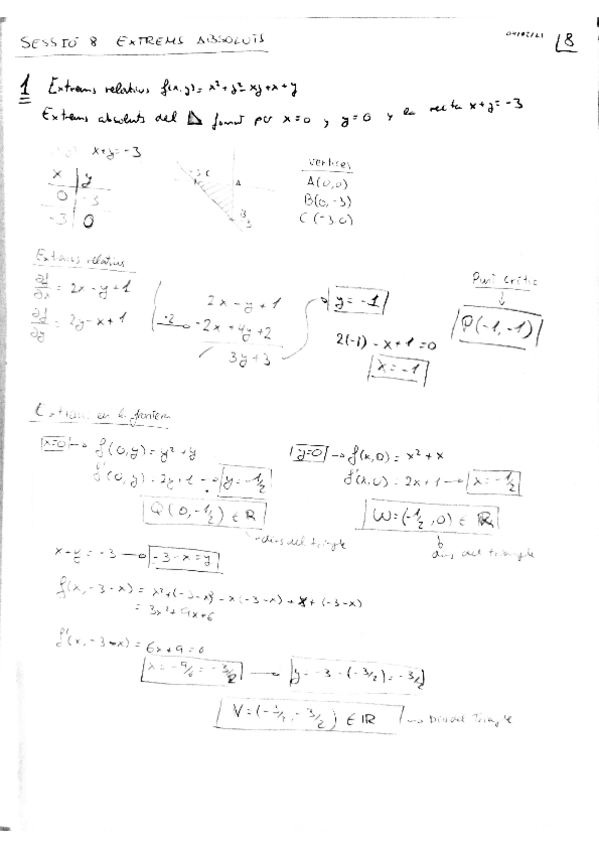 SESSIÓ 8 EXTREMS ABSOLUTS
8
1 Extrems relatius f(x,y) = x²+y²-xy+x+y
Extrems absoluts del format per x=0 y y=0 y la recta x+y=-3
x+y=-3
x y
0 -3
-3 0
-3 C
A
B
-3
vertices
A(0,0)
B(0,-3)
C(-3,0)
Extrems relatius
∂f/∂x = 2x-y+1
∂f/∂y = 2y-x+1
2x-y+1
·2 -2x+4y+2
3y+3
y=-1
2(-1)-x+1=0
x=-1
Punt crític
P(-1,-1)
Extrems en la frontera
x=0 → f(0,y) = y²+y
f'(0,y) = 2y+1 → y=-1/2
Q(0,-1/2) ∈ R
dins del triangle
y=0 → f(x,0) = x²+x
f'(x,0) = 2x+1 → x=-1/2
W=(-1/2,0) ∈ R
dins del triangle
x+y=-3 → -3-x=y
f(x,-3-x) = x²+(-3-x)²-x(-3-x)+x+(-3-x)
= 3x²+9x+6
f'(x,-3-x) = 6x+9=0
x=-9/6=-3/2 → y=-3-(-3/2)=-3/2
V=(-3/2,-3/2) ∈ IR → Dins del Triangle